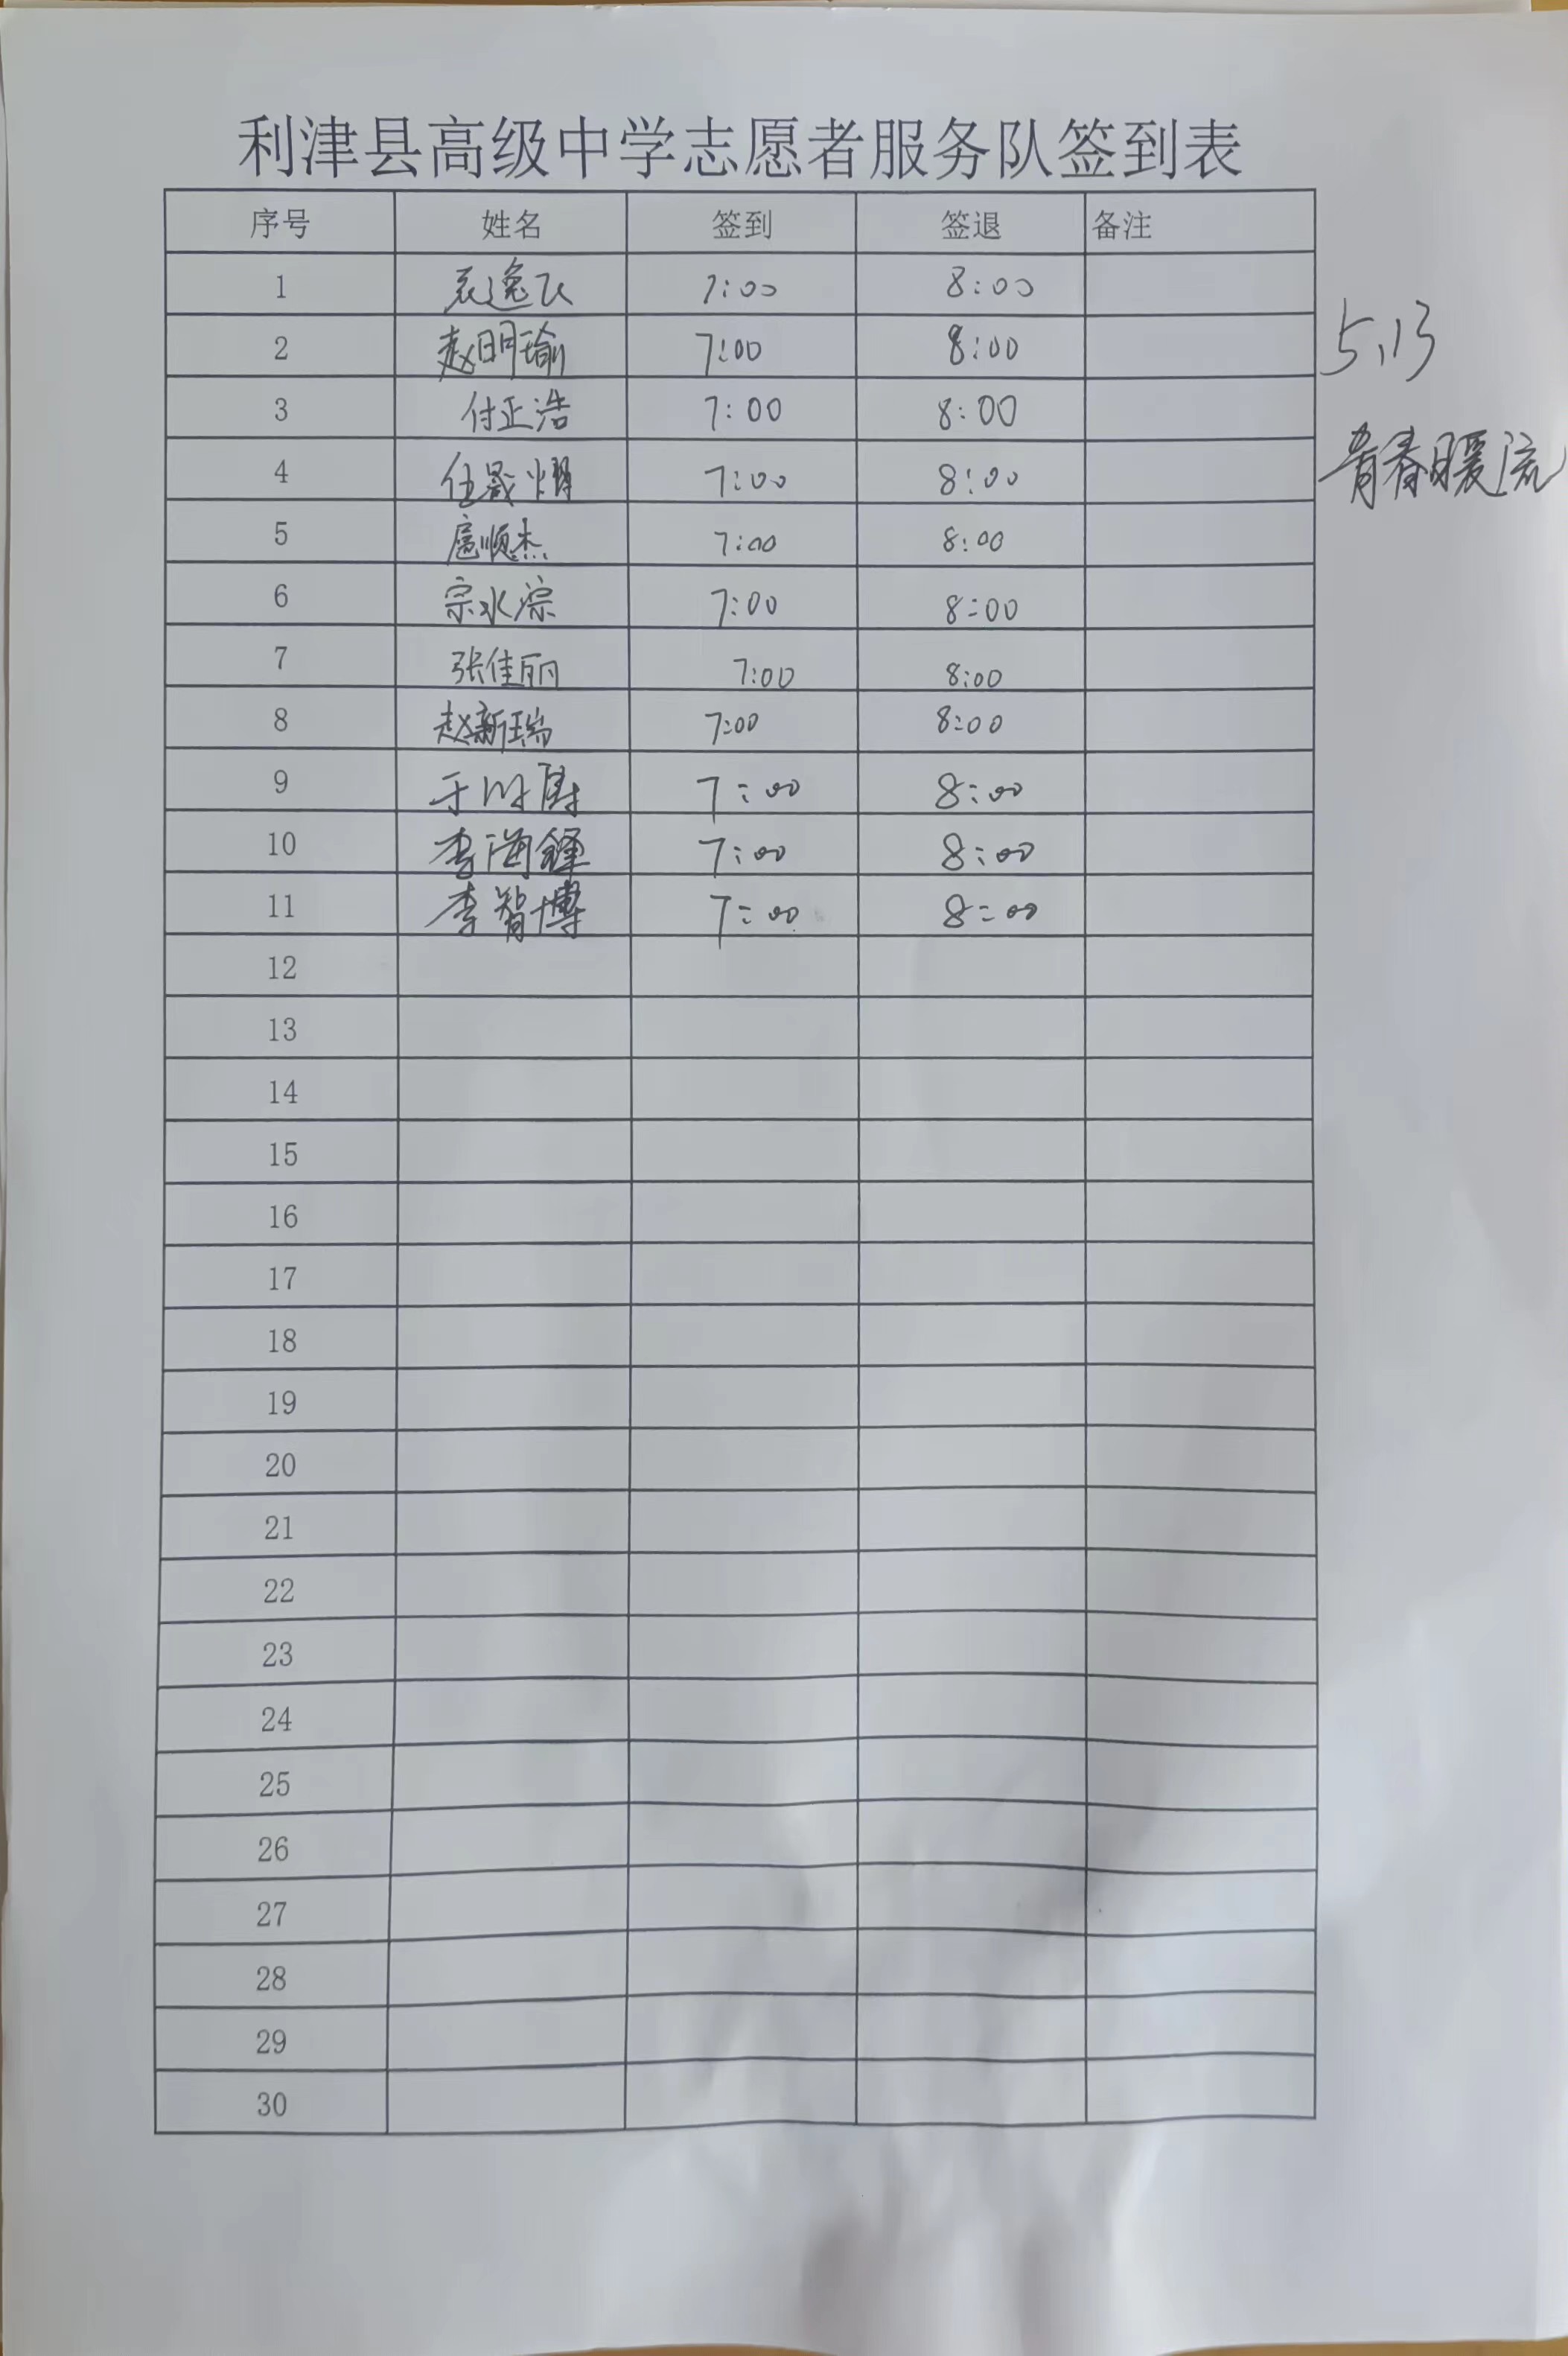 利津县高级中学志愿者服务队签到表
序号 姓名 签到 签退 备注
1 袁逸飞 7:00 8:00
2 赵明瑜 7:00 8:00
3 付正浩 7:00 8:00
4 任晟熠 7:00 8:00
5 扈顺杰 7:00 8:00
6 宗水淙 7:00 8:00
7 张佳丽 7:00 8:00
8 赵新瑞 7:00 8:00
9 7:00 8:00
10 李海锋 7:00 8:00
11 李智博 7:00 8:00
12
13
14
15
16
17
18
19
20
21
22
23
24
25
26
27
28
29
30
5.13
青春暖流